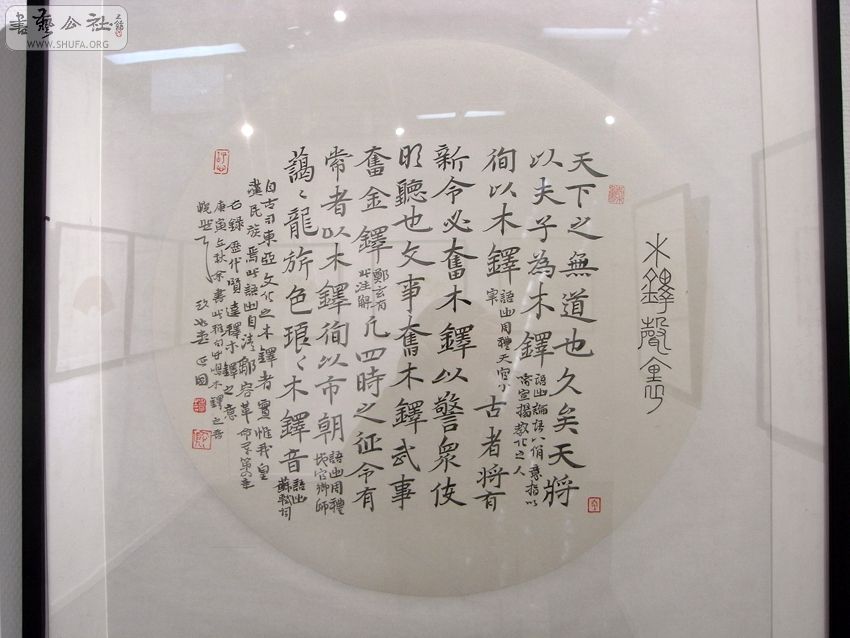 書藝公社
WWW.SHUFA.ORG
木鐸聲
天下之無道也久矣天將
以夫子為木鐸語出論語八佾意指以
宣揚教化之人
徇以木鐸語出周禮天官小
宰古者將有
新令必奮木鐸以警眾使
明聽也文事奮木鐸武事
奮金鐸鄭玄有
此注解凡四時之征令有
常者以木鐸徇以市朝語出周禮
地官鄉師
藹藹龍旂色琅琅木鐸音語出
蘇軾詞
自古為東亞文化之木鐸者實惟我皇
漢民族焉此語出自清鄒容革命軍第四章
右錄歷代賢達釋木鐸之意
庚寅之秋余書此